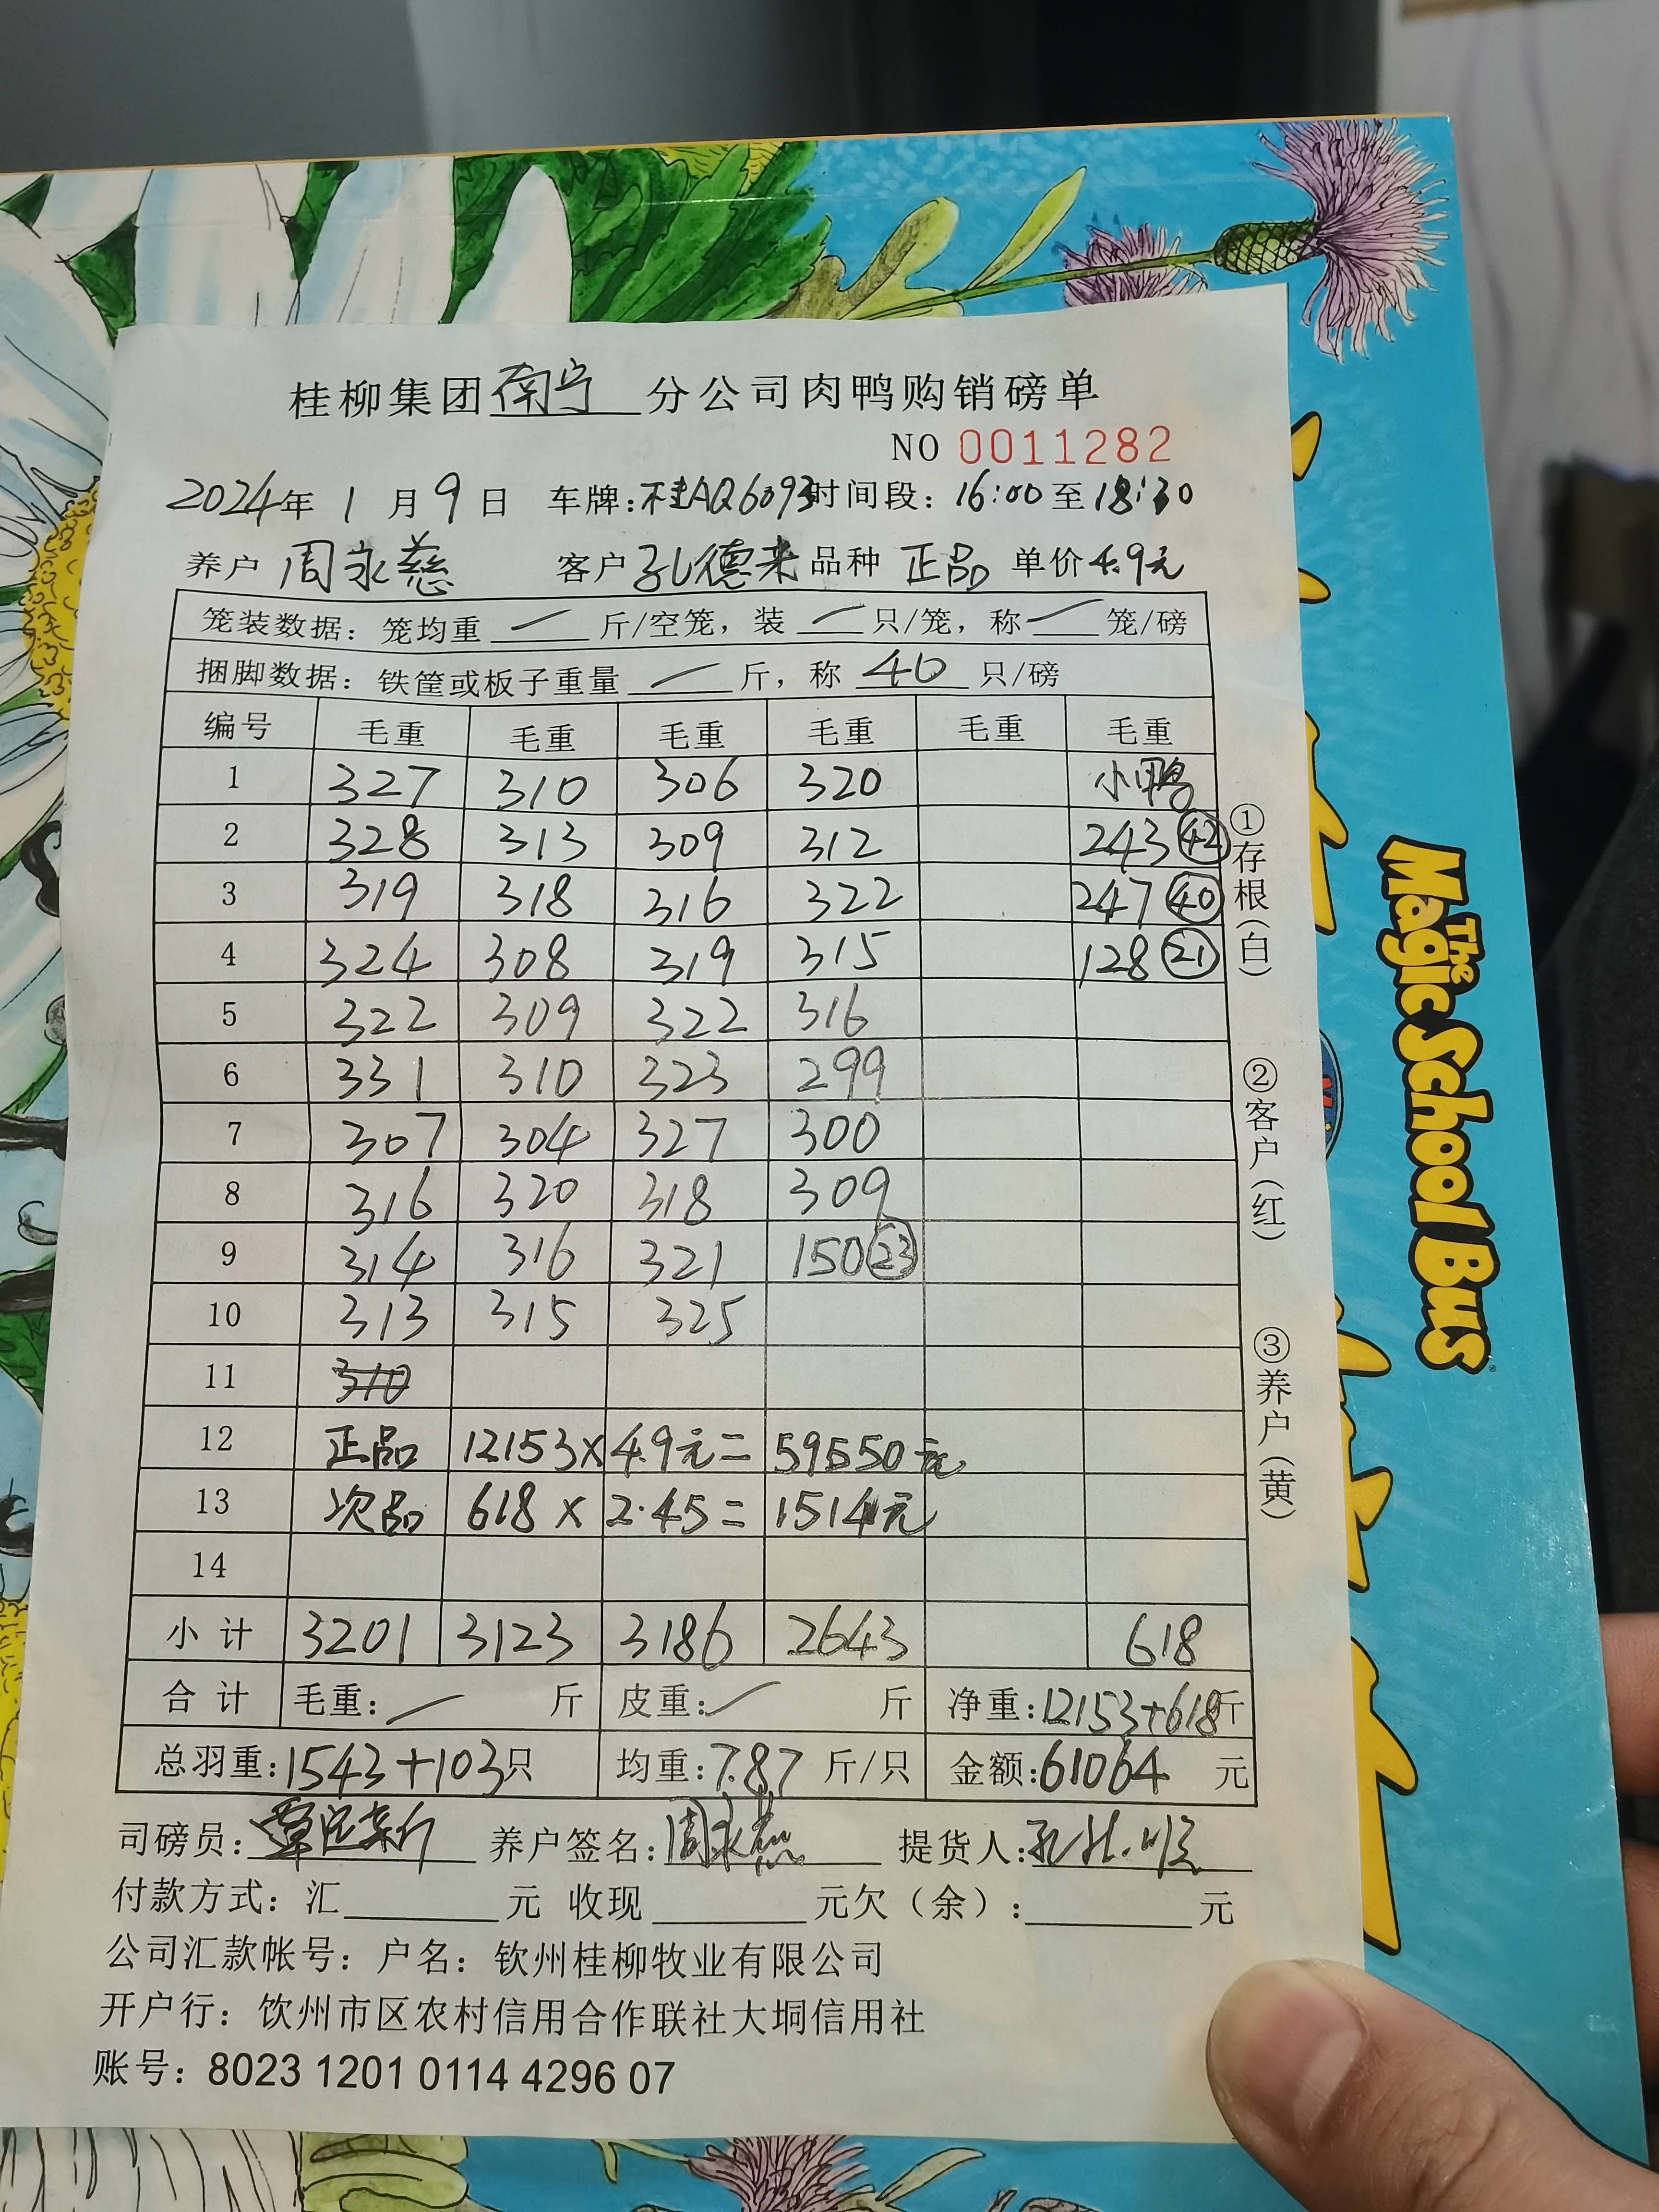 桂柳集团南宁分公司肉鸭购销磅单
NO 0011282
2024年1月9日 车牌:桂AQ6093时间段:16:00至18:30
养户 周永慈 客户 孔德来 品种 正品 单价4.9元
笼装数据:笼均重 — 斤/空笼,装 — 只/笼,称 — 笼/磅
捆脚数据:铁筐或板子重量 — 斤,称 40 只/磅
编号 毛重 毛重 毛重 毛重 毛重 毛重
1 327 310 306 320 小鸭
2 328 313 309 312 243 42
3 319 318 316 322 247 40
4 324 308 319 315 128 21
5 322 309 322 316
6 331 310 323 299
7 307 304 327 300
8 316 320 318 309
9 314 316 321 150 23
10 313 315 325
11 310
12 正品 12153×4.9元=59550元
13 次品 618×2.45=1514元
14
小计 3201 3123 3186 2643 618
合计 毛重:— 斤 皮重:— 斤 净重:12153+618斤
总羽重:1543+103只 均重:7.87 斤/只 金额:61064 元
司磅员: 养户签名:周永慈 提货人:
付款方式:汇 元 收现 元欠(余): 元
公司汇款帐号:户名:钦州桂柳牧业有限公司
开户行:饮州市区农村信用合作联社大垌信用社
账号:8023 1201 0114 4296 07
①存根(白)
②客户(红)
③养户(黄)
The Magic School Bus